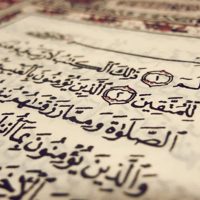 ١ ذَٰلِكَ الْكِتَٰبُ
لِلْمُتَّقِينَ ٢ الَّذِينَ يُؤْمِنُونَ
الصَّلَوٰةَ وَمِمَّا رَزَقْنَٰهُمْ
وَالَّذِينَ يُؤْمِنُونَ بِمَا